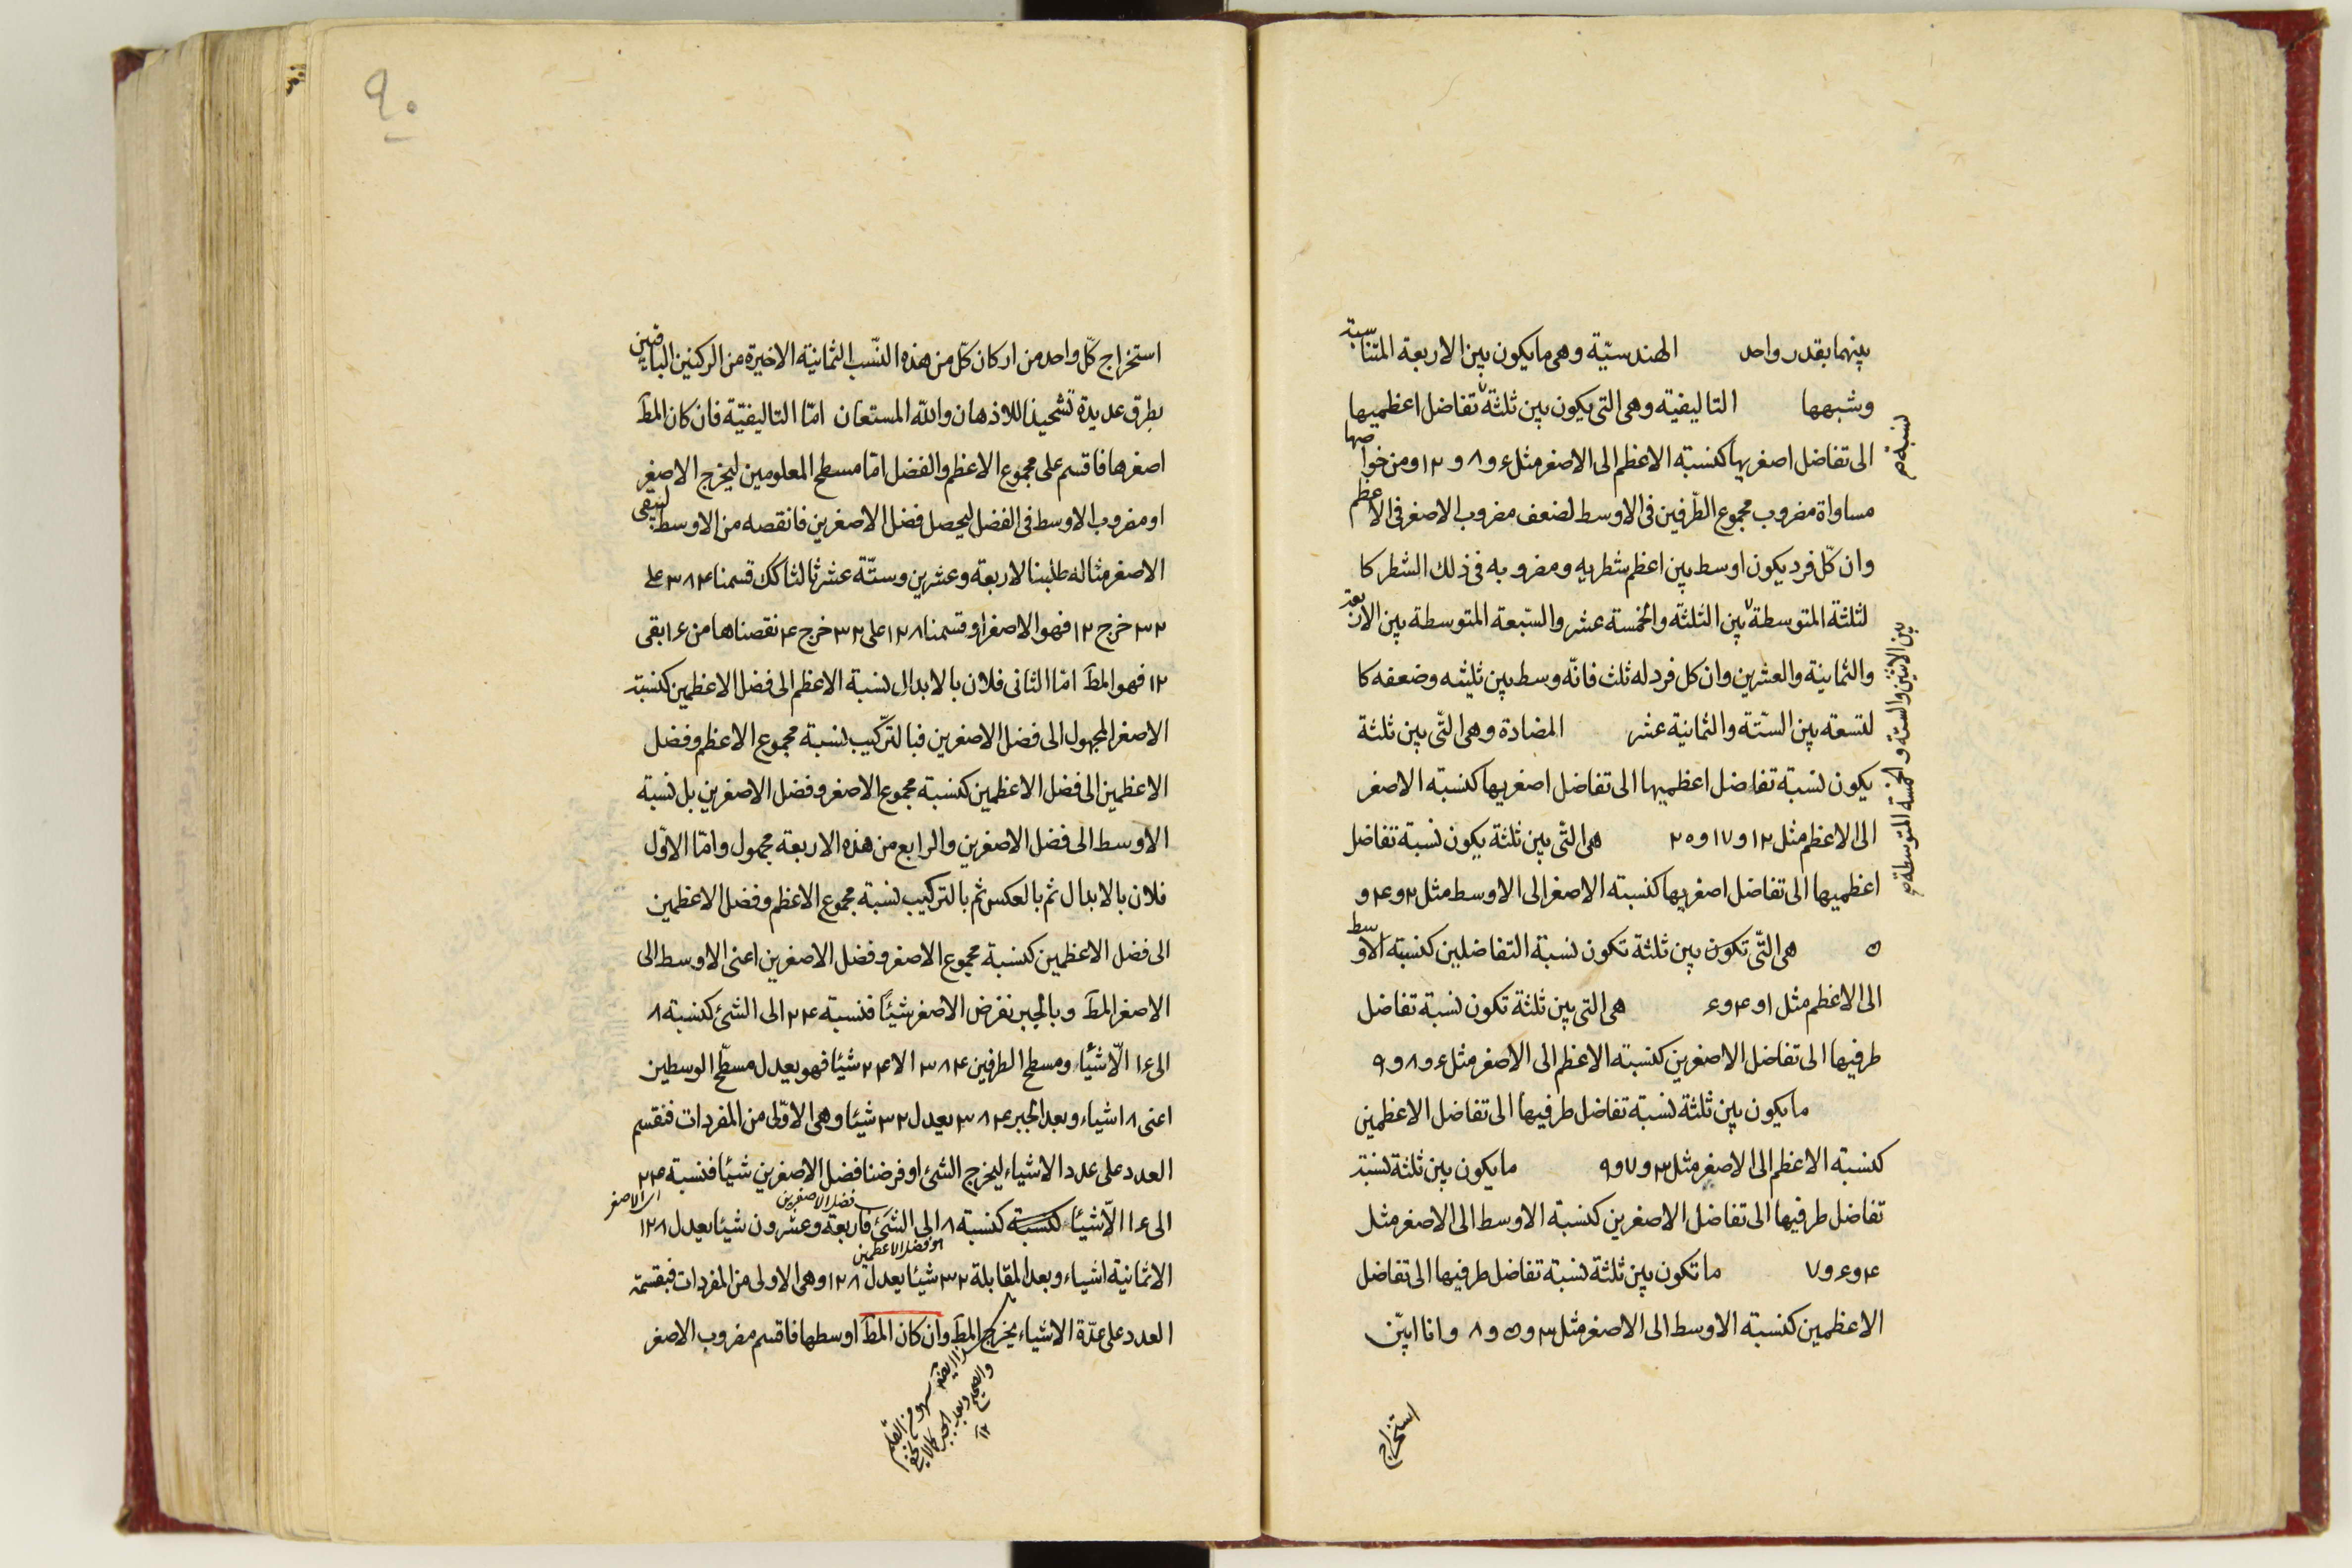 بينهما بقدر واحد الهندسيّة وهى ما يكون بين الاربعة المتناسبة
وشبهها التاليفية وهى التى يكون بين ثلثة تفاضل اعظميها
نسبة
الى تفاضل اصغريها كنسبة الاعظم الى الاصغر مثل ۶ و ۸ و ۱۲ ومن خواصها
مساواة مضروب مجموع الطّرفين فى الاوسط لضعف مضروب الاصغر فى الاعظم
وان كلّ فرد يكون اوسط بين اعظم شطريه ومضروبه فى ذلك الشطر كا
لثلثة المتوسطة بين الثلثة والخمسة عشر والسّبعة المتوسطة بين الاربعة
بين الاثنين والستة والخمسة المتوسطة
والثمانية والعشرين وان كل فرد له ثلث فانّه وسط بين ثليثه وضعفه كا
لتسعة بين الستّة والثمانية عشر المضادة وهى التّى بين ثلثة
يكون نسبة تفاضل اعظميها الى تفاضل اصغريها كنسبة الاصغر
الى الاعظم مثل ۱۲ و ۱۷ و ۲۰ هى التّى بين ثلثة يكون نسبة تفاضل
اعظميها الى تفاضل اصغريها كنسبة الاصغر الى الاوسط مثل ۲ و ۴ و
۵ هى التّى تكون بين ثلثة تكون نسبة التفاضلين كنسبة الاوسط
الى الاعظم مثل ۱ و ۴ و ۶ هى التى بين ثلثة تكون نسبة تفاضل
طرفيها الى تفاضل الاصغرين كنسبة الاعظم الى الاصغر مثل ۶ و ۸ و ۹
ما يكون بين ثلثة نسبة تفاضل طرفيها الى تفاضل الاعظمين
كنسبة الاعظم الى الاصغر مثل ۳ و ۷ و ۹ ما يكون بين ثلثة نسبة
تفاضل طرفيها الى تفاضل الاصغرين كنسبة الاوسط الى الاصغر مثل
۴ و ۶ و ۷ ما تكون بين ثلثة نسبة تفاضل طرفيها الى تفاضل
الاعظمين كنسبة الاوسط الى الاصغر مثل ۳ و ۵ و ۸ وانا ابيّن
استخراج
۹۰
استخراج كلّ واحد من اركان كلّ من هذه النّسب الثمانية الاخيرة من الركنين الباقيين
بطرق عديدة تشحيذا للاذهان والله المستعان امّا التاليفيّة فان كان المط
اصغرها فاقسم على مجموع الاعظم والفضل امّا مسطح المعلومين ليخرج الاصغر
او مضروب الاوسط فى الفضل ليحصل فضل الاصغرين فانقصه من الاوسط ليبقى
الاصغر مثاله طلبنا لاربعة وعشرين وستّة عشر ثالثا كك قسمنا ۳۸۴ على
۳۲ خرج ۱۲ فهو الاصغر او قسمنا ۱۲۸ على ۳۲ خرج ۴ نقصناها من ۱۶ بقى
۱۲ فهو المط امّا الثانى فلان بالابدال نسبة الاعظم الى فضل الاعظمين كنسبة
الاصغر المجهول الى فضل الاصغرين فبالتّركيب نسبة مجموع الاعظم وفضل
الاعظمين الى فضل الاعظمين كنسبة مجموع الاصغر وفضل الاصغرين بل نسبة
الاوسط الى فضل الاصغرين والرابع من هذه الاربعة مجهول وامّا الاوّل
فلان بالابدال ثم بالعكس ثم بالتركيب نسبة مجموع الاعظم وفضل الاعظمين
الى فضل الاعظمين كنسبة مجموع الاصغر وفضل الاصغرين اعنى الاوسط الى
الاصغر المط وبالجبر نفرض الاصغر شيئًا فنسبة ۲۴ الى الشئ كنسبة ۸
الى ۱۶ الّا شيئًا ومسطح الطرفين ۳۸۴ الا ۲۴ شيئا فهو يعدل مسطّح الوسطين
اعنى ۸ اشياء وبعد الجبر ۳۸۴ يعدل ۳۲ شيئا وهى الاوّلى من المفردات فنقسم
العدد على عدد الاشياء ليخرج الشئ او فرضنا فضل الاصغرين شيئا فنسبة ۲۴
اى الاصغر
فضل الاصغرين
الى ۱۶ الّا شيئًا كنسبة كنسبة ۸ الى الشئ فاربعة وعشرون شيئا يعدل ۱۲۸
هو فضل الاعظمين
الا ثمانية اشياء وبعد المقابلة ۳۲ شيئا يعدل ۱۲۸ وهى الاولى من المفردات فبقسمة
العدد على عدّة الاشياء يخرج المط وان كان المط اوسطها فاقسم مضروب الاصغر
سهو من القلم
والصحيح وبعد الجبر كما لا يخفى
۱۲